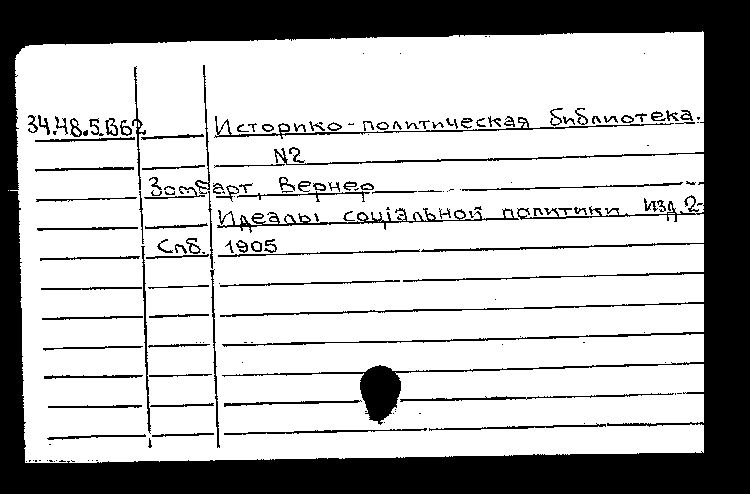 34.48.5.В62 Историко-политическая библиотека.
N2
Зомбарт, Вернер
Идеалы соціальной политики. Изд. 2-
Спб. 1905